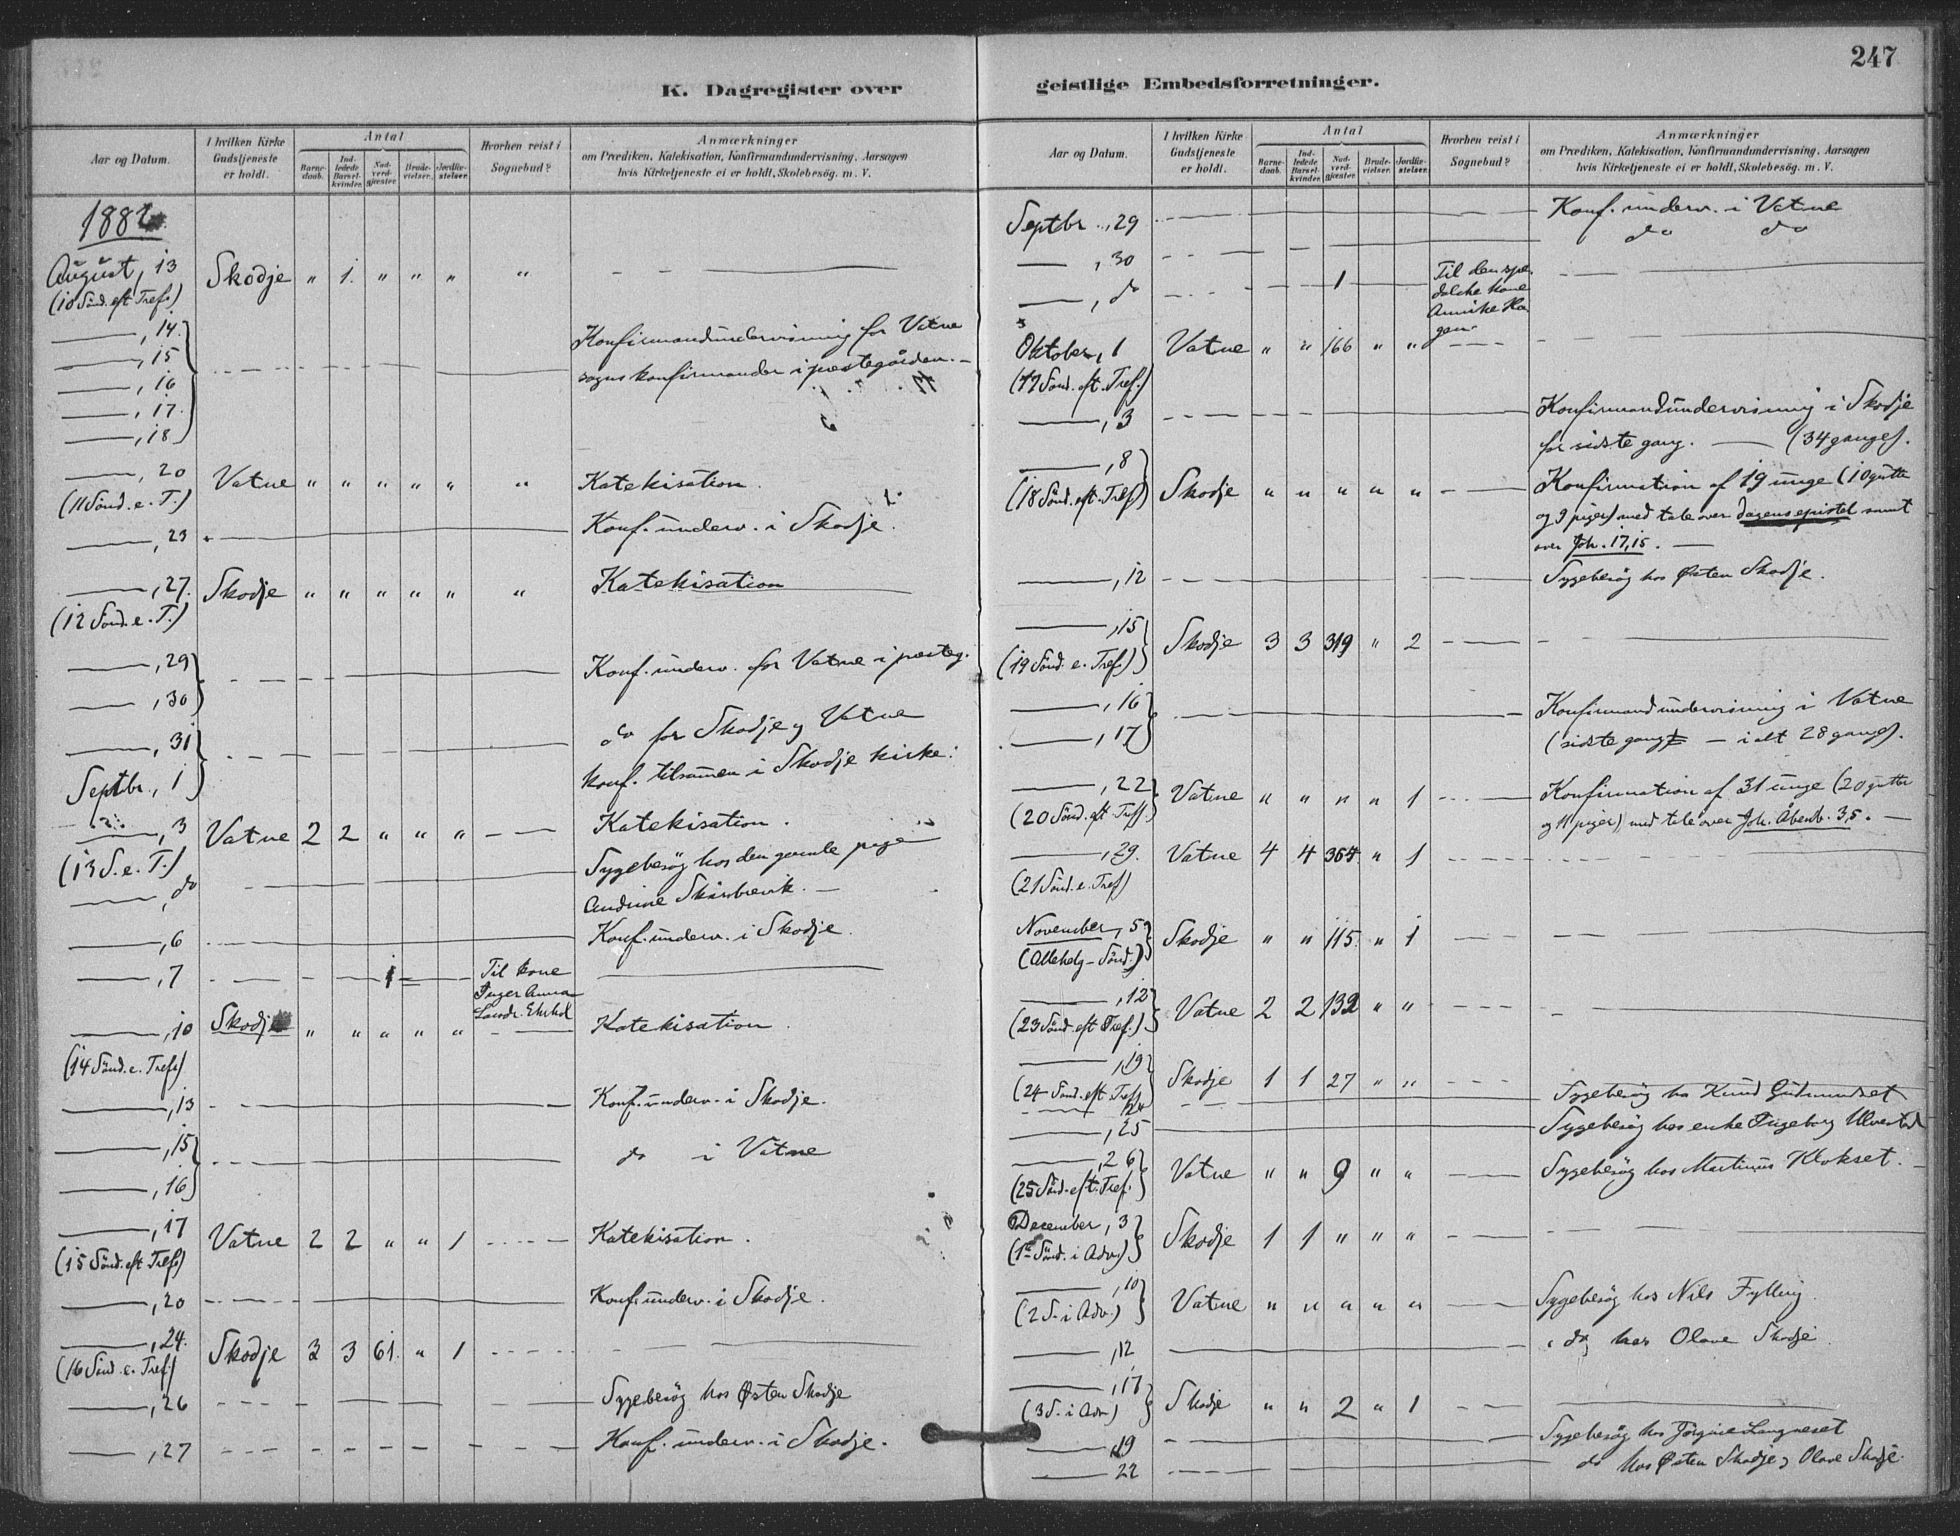 247
K. Dagregister over geistlige Embedsforretninger.
Aar og Datum.
I hvilken Kirke Gudstjeneste er holdt.
Antal
Barnedaab.
Indledede Barselkvinder.
Nadverdgjester.
Brudevielser.
Jordfæstelser.
Hvorhen reist i Sognebud?
Anmærkninger
om Prædiken, Katekisation, Konfirmandundervisning, Aarsagen
hvis Kirketjeneste ei er holdt, Skolebesøg. m. V.
1882
August, 13 Skodje " 1. " " " "
(10 Sönd. eft. Tref.)
14.
15 Konfirmandundervisning for Vatne
16 sogns konfirmander i præstegården. -
17.
18
20 Vatne " " " " " " Katekisation.
(11 Sönd. e. T.)
23 Konf. underv. i Skodje.
27. Skodje " " " " " " Katekisation
(12 Sönd. e. T.)
29 Konf. underv. for Vatne i præsteg.
30
31 do for Skodje og Vatne
Septbr., 1 konf. tilsamen i Skodje kirke.
3 Vatne 2 2 " " " Katekisation.
(13 S. e. T.)
do Sygebesøg hos den gamle pige
Andrine
6 Konf. underv. i Skodje.
7 1 Til kone
Inger Anna
10 Skodje " " " " " Katekisation.
(14 Sönd. e. Tref.)
13 Konf. underv. i Skodje.
15 do i Vatne
16
17 Vatne 2 2 " " 1 Katekisation.
(15 Sönd. eft. Tref.)
20 Konf. underv. i Skodje.
24. Skodje 3 3 61. " 1
(16 Sönd. e. Tref.)
26 Sygebesøg hos Østen Skodje
27 Konf. underv. i Skodje.
Aar og Datum.
I hvilken Kirke Gudstjeneste er holdt.
Antal
Barnedaab.
Indledede Barselkvinder.
Nadverdgjester.
Brudevielser.
Jordfæstelser.
Hvorhen reist i Sognebud?
Anmærkninger
om Prædiken, Katekisation, Konfirmandundervisning, Aarsagen
hvis Kirketjeneste ei er holdt, Skolebesøg. m. V.
Septbr., 29 Konf. underv. i Vatne
30 do do
do 1 Til den spe-
dalske kone
Annike Ha-
gen.
Oktober, 1 Vatne " " 166 " "
(17 Sönd. eft. Tref.)
3 Konfirmandundervisning i Skodje
for sidste gang. (34 gange).
8 Skodje " " " " " Konfirmation af 19 unge (10 gutte
(18 Sönd. eft. Tref) og 9 piger) med tale over dagens epistel samt
over Joh. 17,15.
12 Sygebesøg hos Østen Skodje.
15 Skodje 3 3 319 " 2
(19 Sönd. e. Tref.)
16 Konfirmandundervisning i Vatne
17 (sidste gang - i alt 28 gange).
22 Vatne " " " " 1 Konfirmation af 31 unge (20 gutter
(20 Sönd. eft. Tref.) og 11 piger), med tale over Joh. Åbenb. 3,5.
29. Vatne 4 4 364 " 1
(21 Sönd. e. Tref)
November, 5 Skodje " " 115. " 1
(Allehelg-Sönd.)
12 Vatne 2 2 132 " "
(23 Sönd. eft. Tref.)
19 Skodje 1 1 27 " "
(24 Sönd. eft. Tref)
24 Sygebesøg hos Knud Gudmundset
25 Sygebesøg hos enke Ingeborg Ulvestad
26 Vatne " " 9 " " Sygebesøg hos Martinus Klokset.
(25 Sönd. eft. Tref.)
December, 3 Skodje 1 1 " " "
(1ste Sönd. i Adv.)
10 Vatne " " " " " Sygebesøg hos Nils Fylling.
(2 S. i Adv.)
12 do hos Olave Skodje.
17 Skodje " " 2 " 1
(3 S. i Adv)
19 Sygebesøg hos Jörgine Langneset
22 do hos Østen Skodje og Olave Skodje.